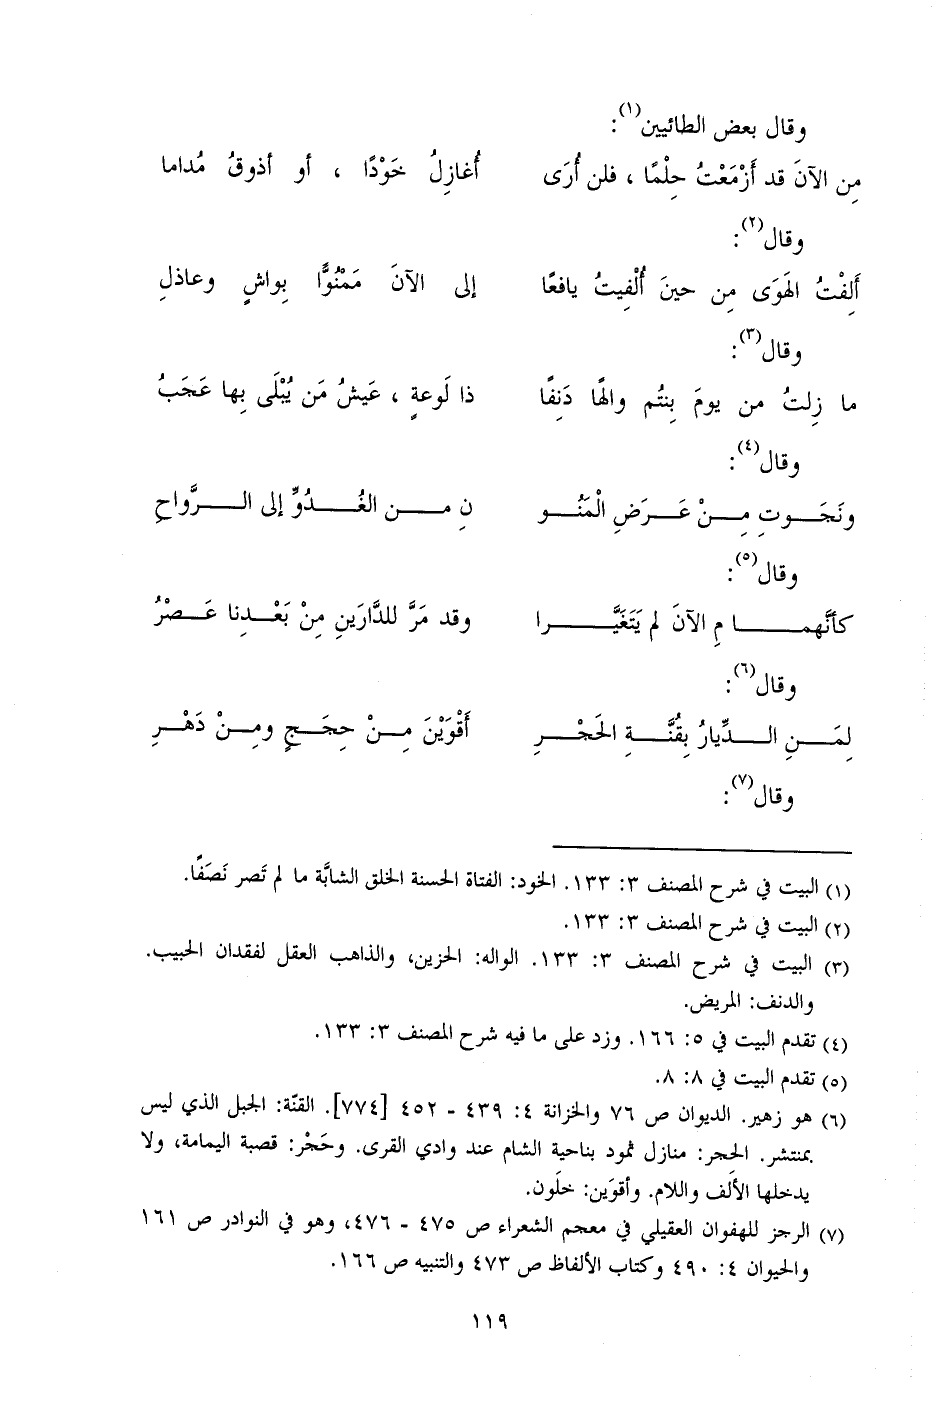 وقال بعض الطائيين(١):
مِن الآنَ قد أَزْمَعْتُ حِلْمًا ، فلن أُرَى أُغازِلُ خَوْدًا ، أو أذوقُ مُداما
وقال(٢):
أَلِفْتُ الهَوَى مِن حينَ أُلْفِيتُ يافعًا إلى الآنَ مَمْنُوًّا بِواشٍ وعاذلِ
وقال(٣):
ما زِلتُ من يومَ بِنتُم والهًا دَنِفًا ذا لَوعةٍ ، عَيشُ مَن يُبْلَى بِها عَجَبُ
وقال(٤):
ونَجَـــوتِ مِـــنْ عَـــرَضِ الْمَنُـــو نِ مـــن الغُـــدُوِّ إلى الـــرَّواحِ
وقال(٥):
كأنَّهمـــا مِ الآنَ لم يَتَغَيَّـــرا وقد مَرَّ للدَّارَينِ مِنْ بَعْـــدِنا عَـــصْرُ
وقال(٦):
لِمَـــنِ الـــدِّيارُ بِقُنَّـــةِ الحَجْـــرِ أَقْوَيْنَ مِـــنْ حِجَـــجٍ ومِـــنْ دَهْـــرِ
وقال(٧):
(١) البيت في شرح المصنف ٣: ١٣٣. الخود: الفتاة الحسنة الخلق الشابَّة ما لم تَصر نَصَفًا.
(٢) البيت في شرح المصنف ٣: ١٣٣.
(٣) البيت في شرح المصنف ٣: ١٣٣. الواله: الحزين، والذاهب العقل لفقدان الحبيب.
والدنف: المريض.
(٤) تقدم البيت في ٥: ١٦٦. وزد على ما فيه شرح المصنف ٣: ١٣٣.
(٥) تقدم البيت في ٨: ٨.
(٦) هو زهير. الديوان ص ٧٦ والخزانة ٤: ٤٣٩ - ٤٥٢ [٧٧٤]. القنّة: الجبل الذي ليس
بمنتشر. الحجر: منازل ثمود بناحية الشام عند وادي القرى. وحَجْر: قصبة اليمامة، ولا
يدخلها الألَف واللام. وأقوَين: خلَون.
(٧) الرجز للهفوان العقيلي في معجم الشعراء ص ٤٧٥ - ٤٧٦، وهو في النوادر ص ١٦١
والحيوان ٤: ٤٩٠ وكتاب الألفاظ ص ٤٧٣ والتنبيه ص ١٦٦.
١١٩